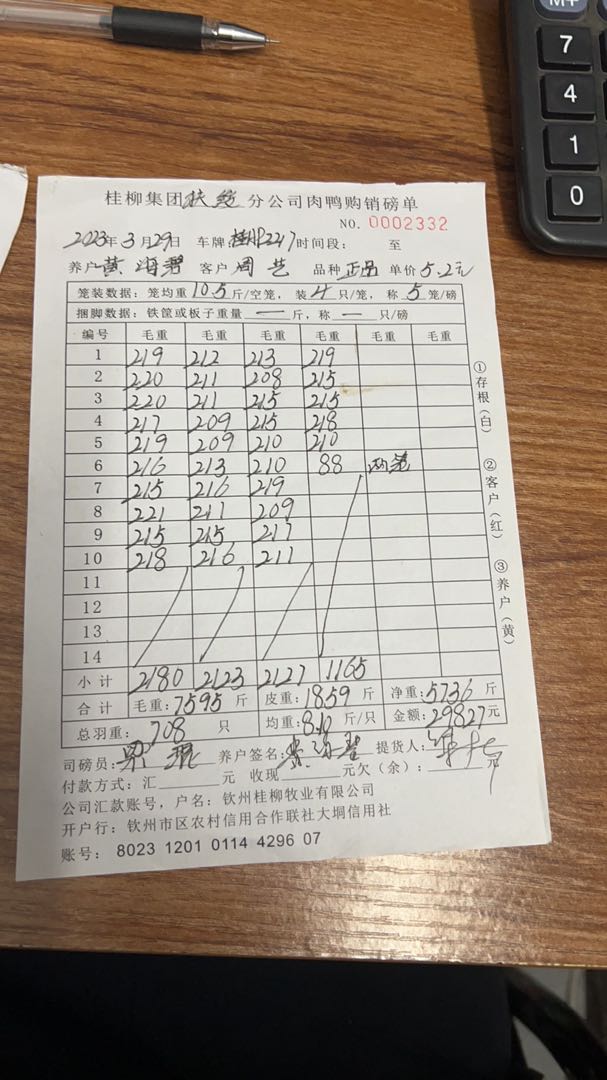 M+
7
4
1
0
桂柳集团扶绥分公司肉鸭购销磅单
NO. 0002332
2023年3月29日 车牌: 2217 时间段: 至
养户 黄海 客户 周艺 品种 正品 单价 5.2元
笼装数据: 笼均重 10.5 斤/空笼, 装 4 只/笼, 称 5 笼/磅
捆脚数据: 铁筐或板子重量 — 斤, 称 — 只/磅
编号 毛重 毛重 毛重 毛重 毛重 毛重
1 219 212 213 219
2 220 211 208 215
3 220 211 215 215
4 217 209 215 218
5 219 209 210 210
6 216 213 210 88 两笼
7 215 216 219
8 221 211 209
9 215 215 217
10 218 216 211
11
12
13
14
小计 2180 2123 2127 1165
合计 毛重: 7595 斤 皮重: 1859 斤 净重: 5736 斤
总羽重: 708 只 均重: 8.10 斤/只 金额: 29827元
司磅员: 养户签名: 提货人:
付款方式: 汇 元 收现 元欠（余）: 元
公司汇款账号, 户名: 钦州桂柳牧业有限公司
开户行: 钦州市区农村信用合作联社大垌信用社
账号: 8023 1201 0114 4296 07
①存根（白）
②客户（红）
③养户（黄）